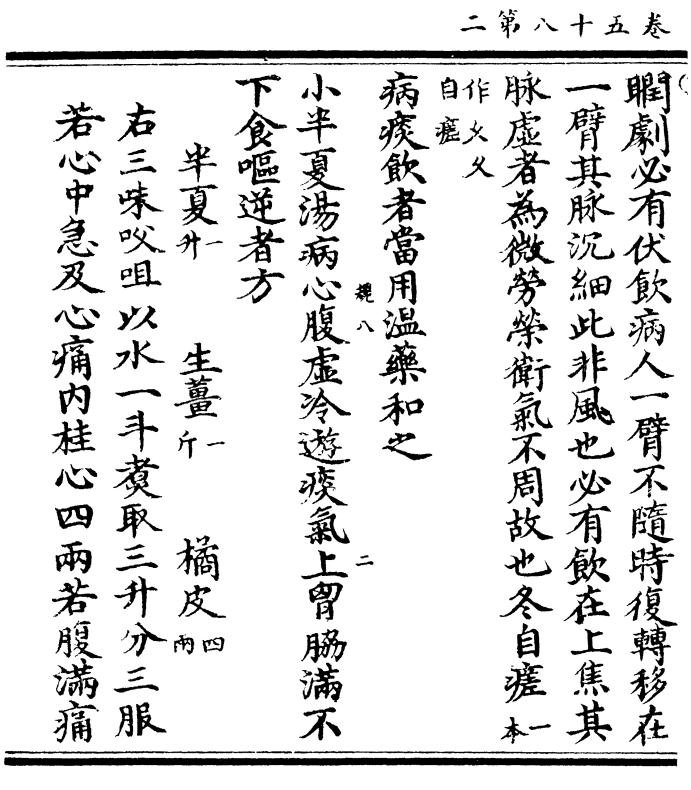 卷五十八第二
瞤劇必有伏飲病人一臂不隨時復轉移在
一臂其脉沉細此非風也必有飲在上焦其
脉虛者為微勞榮衛氣不周故也冬自瘥一本
作夂夂
自瘥
病痰飲者當用溫藥和之
小半夏湯病心腹虛冷遊痰氣上胷脇滿不
八
二
下食嘔逆者方
半夏一升 生薑一斤 橘皮四兩
右三味㕮咀以水一斗煑取三升分三服
若心中急及心痛内桂心四兩若腹滿痛